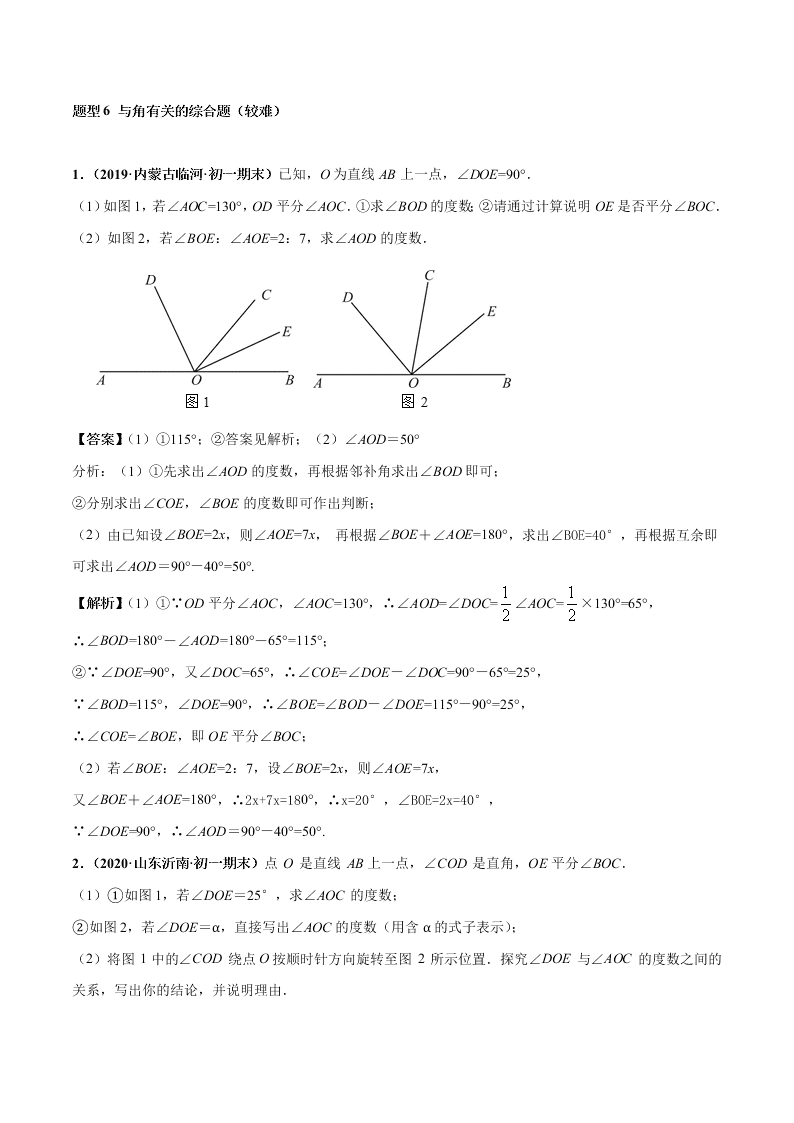 题型 6 与角有关的综合题（较难）
1．（2019·内蒙古临河·初一期末）已知，O 为直线 AB 上一点，∠DOE=90°．
（1）如图 1，若∠AOC=130°，OD 平分∠AOC．①求∠BOD 的度数；②请通过计算说明 OE 是否平分∠BOC．
（2）如图 2，若∠BOE：∠AOE=2：7，求∠AOD 的度数．
D C E A O B
图 1
D C E A O B
图 2
【答案】（1）①115°；②答案见解析；（2）∠AOD＝50°
分析：（1）①先求出∠AOD 的度数，再根据邻补角求出∠BOD 即可；
②分别求出∠COE，∠BOE 的度数即可作出判断；
（2）由已知设∠BOE=2x，则∠AOE=7x， 再根据∠BOE＋∠AOE=180°，求出∠BOE=40°，再根据互余即
可求出∠AOD＝90°－40°=50°.
【解析】（1）①∵OD 平分∠AOC，∠AOC=130°，∴∠AOD=∠DOC=1/2∠AOC=1/2×130°=65°，
∴∠BOD=180°－∠AOD=180°－65°=115°；
②∵∠DOE=90°，又∠DOC=65°，∴∠COE=∠DOE－∠DOC=90°－65°=25°，
∵∠BOD=115°，∠DOE=90°，∴∠BOE=∠BOD－∠DOE=115°－90°=25°，
∴∠COE=∠BOE，即 OE 平分∠BOC；
（2）若∠BOE：∠AOE=2：7，设∠BOE=2x，则∠AOE=7x，
又∠BOE＋∠AOE=180°，∴2x+7x=180°，∴x=20°，∠BOE=2x=40°，
∵∠DOE=90°，∴∠AOD＝90°－40°=50°.
2．（2020·山东沂南·初一期末）点 O 是直线 AB 上一点，∠COD 是直角，OE 平分∠BOC．
（1）①如图 1，若∠DOE＝25°，求∠AOC 的度数；
②如图 2，若∠DOE＝α，直接写出∠AOC 的度数（用含 α 的式子表示）；
（2）将图 1 中的∠COD 绕点 O 按顺时针方向旋转至图 2 所示位置．探究∠DOE 与∠AOC 的度数之间的
关系，写出你的结论，并说明理由．